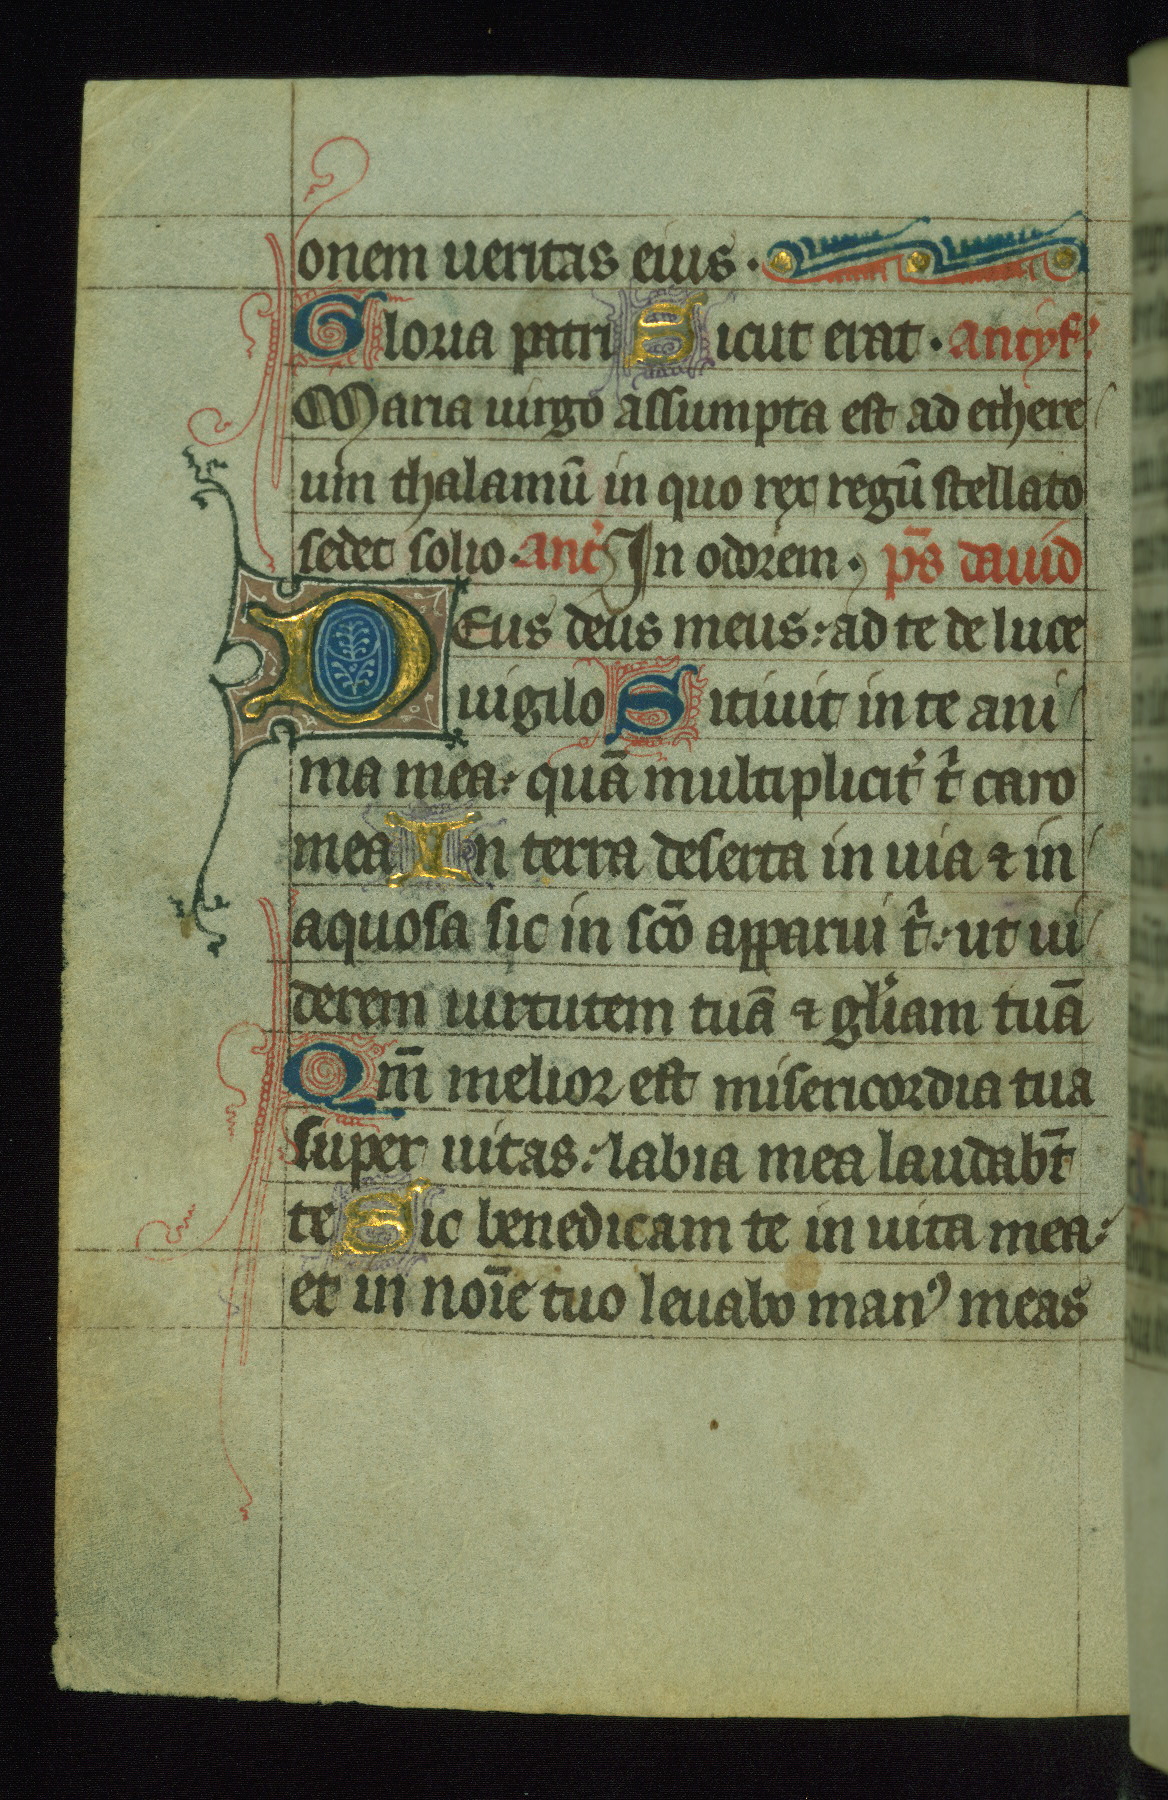 onem ueritas eius ·
Gloria patri Sicut erat · antyf'
Maria uirgo assumpta est ad ethere
um thalamū in quo rex regū stellato
sedet solio · ant' In odorem · p̄s dauid
DEus deus meus : ad te de luce
uigilo Sitiuit in te ani
ma mea : quā multiplicit' t̂ caro
mea In terra deserta in uia ⁊ in
aquosa sic in sc̄o apparui t̂ : ut ui
derem uirtutem tuā ⁊ gl'iam tuā
Qm̄ melior est misericordia tua
super uitas : labia mea laudabt̄
te Sic benedicam te in uita mea :
et in noīe tuo leuabo manꝰ meas